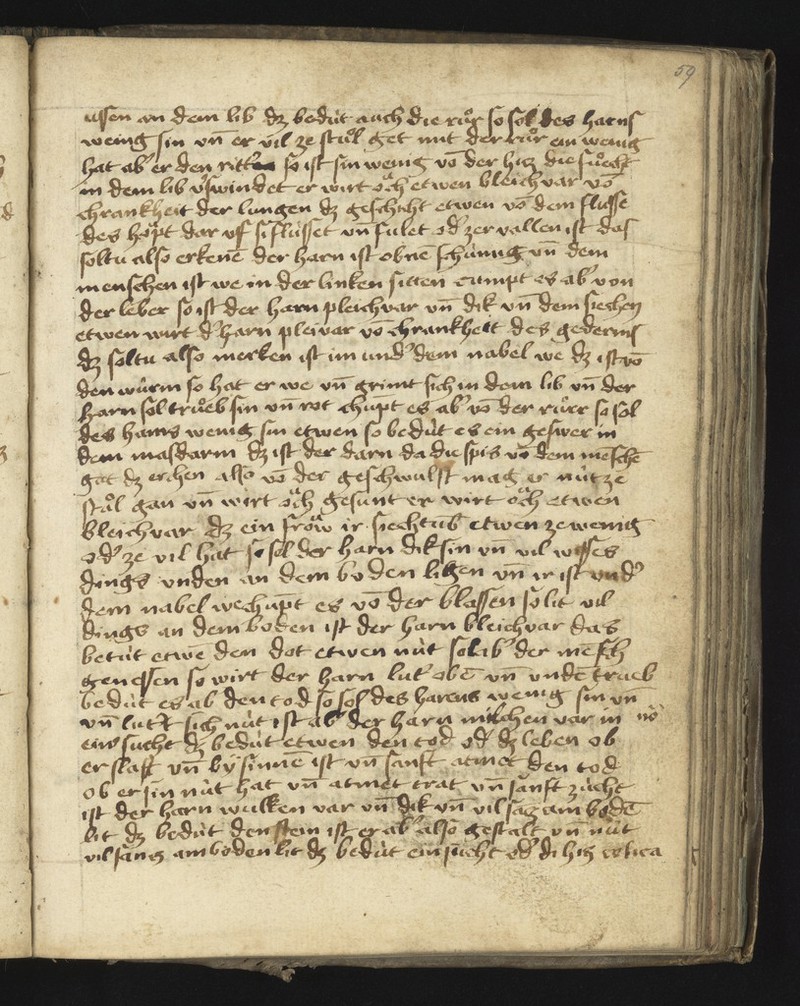 59
ussen an dem lib dz bedút auch die růr so sol des harns
wenig sin vn̄ er vil ze stůl get mit der růr ein wenig
hat ab' er den ritten so ist sin wenig vō der hitz die fúcht
in dem lib v'swindet er wirt oͮch etwen bleichvar vō
chrankheit der lungen dz geschicht etwen vō dem flusse
des hoͮpt dar vf si flússet vn̄ fulet od' zervallen ist das
soltu also erkenē der harn ist obnē schúmig vn̄ dem
menschen ist we in der linken sitten cumpt es ab' von
der leber so ist der harn pleichvar vn̄ dik vn̄ dem siechen
etwen wirt d' harn pleivar vō chrankheit des gederms
dz soltu also merken ist im und' dem nabel we dz ist vō
den wúrm so hat er we vn̄ grimt sich in dem lib vn̄ der
harn sol trůeb sin vn̄ rot chúpt es ab' vō der růrr so sol
des harns wenig sin etwen so bedút es ein geswer in
dem masdarm dz ist der darn da die spis vō dem mēschē
gat dz erchen also vō der geschwulst mag er nút ze
stůl gan vn̄ wirt oͮch gesunt er wirt oͮch etwen
bleichvar dz ein froͮw ir siechtūb etwen ze wenig
od' ze vil hat so sol der harn dik sin vn̄ vil wisses
dings vnden an dem boden ligen vn̄ ir ist vnd'
dem nabel we chúpt es vō der blassen so lit vil
dings an dem boden ist der harn bleichvar das
betút etwē den dot etwen nút sol ab' der mēsch
genessen so wirt der harn lut' obē vn̄ vndē trueb
bedút es ab den tod so sol des harens wenig sin vn̄
vn̄ lut't sich nút ist ab' der harn milchen var in
einr sucht dz bedút etwen den tod od' dz leben ob
er slaft vn̄ by sinnē ist vn̄ sanft atmet den tod
ob er sin nút hat vn̄ atmet trat vn̄ sanft zúcht
ist der harn wulken var vn̄ dik vn̄ vil sāg am bodē
lit dz bedút den stein ist er ab' also gestalt vn̄ nút
vil sang am boden lit dz bedút ein sucht od' di hitz etica